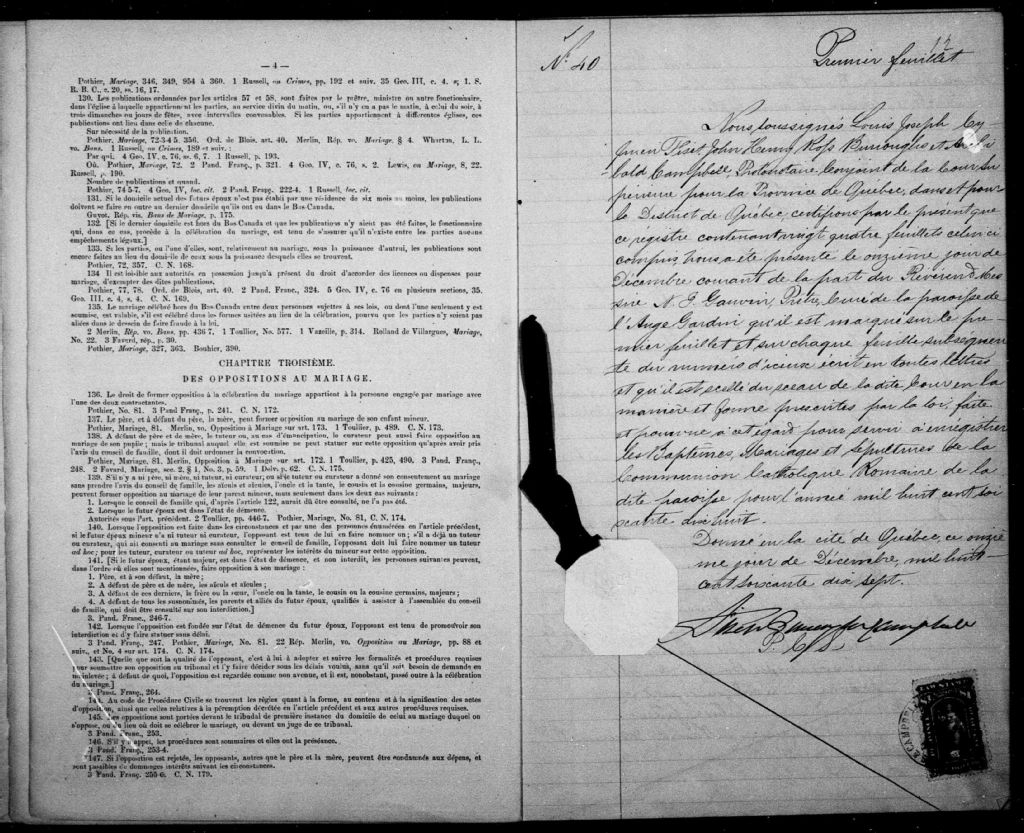 — 4 —
Pothier, Mariage, 346, 349, 954 à 360. 1 Russell, on Crimes, pp. 192 et suiv. 35 Geo. III, c. 4. s. 1. S.
R. B. C., c. 20, ss. 16, 17.
130. Les publications ordonnées par les articles 57 et 58, sont faites par le prêtre, ministre ou autre fonctionnaire,
dans l'église à laquelle appartiennent les parties, au service divin du matin, ou, s'il n'y en a pas le matin, à celui du soir, à
trois dimanches ou jours de fêtes, avec intervalles convenables. Si les parties appartiennent à différentes églises, ces
publications ont lieu dans celle de chacune.
Sur nécessité de la publication.
Pothier, Mariage, 72-3-4-5. 356. Ord. de Blois, art. 40. Merlin, Rép. vo. Mariage. § 4. Wharton, L. L.
vo. Bans. 1 Russell, on Crimes, 189 et suiv.
Par qui. 4 Geo. IV, c. 76, ss. 6, 7. 1 Russell, p. 193.
Où. Pothier, Mariage, 72. 2 Pand. Franç., p. 321. 4 Geo. IV, c. 76, s. 2. Lewis, on Mariage, 8, 22.
Russell, p. 190.
Nombre de publications et quand.
Pothier, 74 5-7. 4 Geo. IV, loc. cit. 2 Pand. Franç. 222-4. 1 Russell, loc. cit.
131. Si le domicile actuel des futurs époux n'est pas établi par une résidence de six mois au moins, les publications
doivent se faire en outre au dernier domicile qu'ils ont eu dans le Bas-Canada.
Guyot. Rép. vis. Bans de Mariage, p. 175.
132. [Si le dernier domicile est hors du Bas-Canada et que les publications n'y aient pas été faites, le fonctionnaire
qui, dans ce cas, procède à la célébration du mariage, est tenu de s'assurer qu'il n'existe entre les parties aucuns
empêchements légaux.]
133. Si les parties, ou l'une d'elles, sont, relativement au mariage, sous la puissance d'autrui, les publications sont
encore faites au lieu du domicile de ceux sous la puissance desquels elles se trouvent.
Pothier, 72, 357. C. N. 168.
134 Il est loisible aux autorités en possession jusqu'à présent du droit d'accorder des licences ou dispenses pour
mariage, d'exempter des dites publications.
Pothier, 77, 78. Ord. de Blois, art. 40. 2 Pand. Franç., 324. 5 Geo. IV, c. 76 en plusieurs sections, 35.
Geo. III, c. 4, s. 4. C. N. 169.
135. Le mariage célébré hors du Bas-Canada entre deux personnes sujettes à ses lois, ou dont l'une seulement y est
soumise, est valable, s'il est célébré dans les formes usitées au lieu de la célébration, pourvu que les parties n'y soient pas
allées dans le dessein de faire fraude à la loi.
2 Merlin, Rép. vo. Bans, pp. 436 7, 1 Toullier, No. 577. 1 Vazeille, p. 314. Rolland de Villargues, Mariage,
No. 22. 3 Favard, rép., p. 30.
Pothier, Mariage, 327, 363. Bouhier, 390.
CHAPITRE TROISIÈME.
DES OPPOSITIONS AU MARIAGE.
136. Le droit de former opposition à la célébration du mariage appartient à la personne engagée par mariage avec
l'une des deux contractantes.
Pothier, No. 81. 3 Pand Franç., p. 241. C. N. 172.
137. Le père, et à défaut du père, la mère, peut former opposition au mariage de son enfant mineur.
Pothier, Mariage, 81. Merlin. vo. Opposition à Mariage sur art. 173. 1 Toullier, p. 489. C. N. 173.
138. A défaut de père et de mère, le tuteur ou, au cas d'émancipation, le curateur peut aussi faire opposition au
mariage de son pupille ; mais le tribunal auquel elle est soumise ne peut statuer sur cette opposition qu'après avoir pris
l'avis du conseil de famille, dont il doit ordonner la convocation.
Pothier, Mariage, 81. Merlin, Opposition à Mariage sur art. 172. 1 Toullier, p. 425, 490. 3 Pand. Franç.,
248. 2 Favard, Mariage, sec. 2, § 1, No. 3, p. 59. 1 Delv. p. 62. C. N. 175.
139. S'il n'y a ni père, ni mère, ni tuteur, ni curateur; ou si le tuteur ou curateur a donné son consentement au mariage
sans prendre l'avis du conseil de famille, les aïeuls et aïeules, l'oncle et la tante, le cousin et la cousine germains, majeurs,
peuvent former opposition au mariage de leur parent mineur, mais seulement dans les deux cas suivants :
1. Lorsque le conseil de famille qui, d'après l'article 122, aurait dû être consulté, ne l'a pas été.
2. Lorsque le futur époux est dans l'état de démence.
Autorités sous l'art. précédent. 2 Toullier, pp. 446-7. Pothier, Mariage, No. 81, C. N. 174.
140. Lorsque l'opposition est faite dans les circonstances et par une des personnes énumérées en l'article précédent,
si le futur époux mineur n'a ni tuteur ni curateur, l'opposant est tenu de lui en faire nommer un ; s'il a déjà un tuteur
ou curateur, qui ait consenti au mariage sans consulter le conseil de famille, l'opposant doit lui faire nommer un tuteur
ad hoc ; pour les tuteur, curateur ou tuteur ad hoc, représenter les intérêts du mineur sur cette opposition.
141. [Si le futur époux, étant majeur, est dans l'état de démence, et non interdit, les personnes suivantes peuvent,
dans l'ordre où elles sont mentionnées, faire opposition à son mariage :
1. Père, et à son défaut, la mère ;
2. A défaut de père et de mère, les aïeuls et aïeules ;
3. A défaut de ces derniers, le frère ou la sœur, l'oncle ou la tante, le cousin ou la cousine germains, majeurs ;
4. A défaut de tous les susnommés, les parents et alliés du futur époux, qualifiés à assister à l'assemblée du conseil
de famille, qui doit être consulté sur son interdiction.]
3. Pand. Franç., 246-7.
142. Lorsque l'opposition est fondée sur l'état de démence du futur époux, l'opposant est tenu de promouvoir son
interdiction et d'y faire statuer sans délai.
3 Pand. Franç., 247. Pothier, Mariage, No. 81. 22 Rép. Merlin, vo. Opposition au Mariage, pp. 88 et
suiv., et No. 4 sur art. 174. C. N. 174.
143. [Quelle que soit la qualité de l'opposant, c'est à lui à adopter et suivre les formalités et procédures requises
pour soumettre son opposition au tribunal et l'y faire décider sous les délais voulus, sans qu'il soit besoin de demande en
mainlevée ; à défaut de quoi, l'opposition est regardée comme non avenue, et il est, nonobstant, passé outre à la célébration
du mariage.]
3 Pand. Franç., 264.
144. Au code de Procédure Civile se trouvent les règles quant à la forme, au contenu et à la signification des actes
d'opposition, ainsi que celles relatives à la péremption décrétée en l'article précédent et aux autres procédures requises.
145. Les oppositions sont portées devant le tribunal de première instance du domicile de celui au mariage duquel on
s'oppose, ou du lieu où doit se célébrer le mariage, ou devant un juge de ce tribunal.
3 Pand. Franç., 253.
146. S'il y a appel, les procédures sont sommaires et elles ont la préséance.
3 Pand. Franç., 253-4.
147. Si l'opposition est rejetée, les opposants, autres que le père et la mère, peuvent être condamnés aux dépens, et
sont passibles de dommages intérêts suivant les circonstances.
3 Pand. Franç. 255-6. C. N. 179.
No. 40
Premier feuillet
Nous soussignés Louis Joseph Cy-
prien Fiset, John Henry Ross Burroughs et Archi
bald Campbell Protonotaire Conjoint de la Cour Su
périeure pour la Province de Québec, dans et pour
le District de Québec, certifions par le présent que
ce registre contenant vingt quatre feuillets celui ci
compris, nous a été présenté le onzième jour de
Décembre courant de la part du Révérend Mes
sire N. J. Gauvin, Prêtre, Curé de la paroisse de
l'Ange Gardien qu'il est marqué sur le pre
mier feuillet et sur chaque feuille subséquen
te du numéros d'iceux écrit en toutes lettres
et qu'il est scellé du sceau de la dite Cour en la
manière et forme prescrites par la loi, faite
et pourvue à cet égard pour servir à enregistrer
les Baptêmes, Mariages et Sépultures de la
Communion Catholique Romaine de la
dite paroisse pour l'année mil huit cent soi
xante dix huit.
Donné en la cité de Québec, ce onziè
me jour de Décembre, mil huit
cent soixante dix sept.
Fiset Burroughs Campbell
P. C. S.